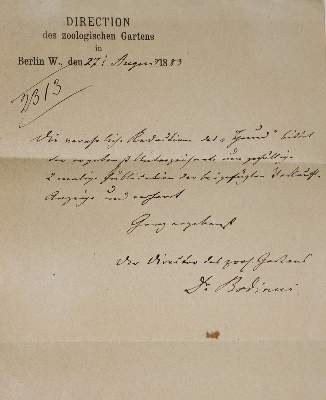 DIRECTION
des zoologischen Gartens
in
Berlin W., den 27. August 1883
2313
Die verehrliche Redaktion des "Hund" bittet
der ergebenst Unterzeichnete um gefällige
2 malige Publikation der beigefügten Verkaufs-
Anzeige und verharrt
Ganz ergebenst
Der Director des zool. Gartens
Dr. Bodinus